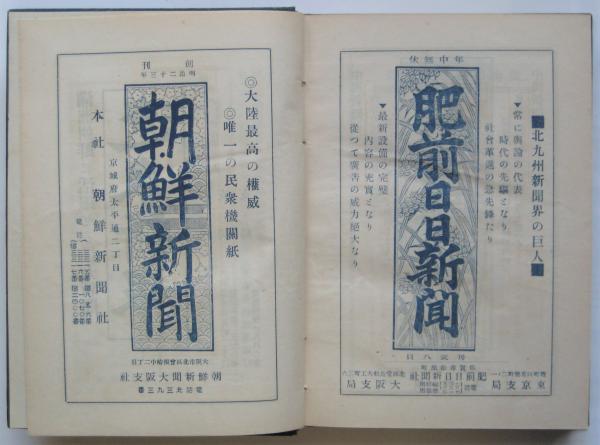 年中無休
■北九州新聞界の巨人■
▼常に輿論の代表
時代の先驅となり
社會革進の急先鋒たり
肥前日日新聞
▼最新設備の完璧
内容の充實となり
從つて廣吿の威力絕大なり
東京支局
肥前日日新聞社
大阪支局
創刊
明治二十三年
◎大陸最高の權威
◎唯一の民衆機關紙
朝鮮新聞
京城府太平通二丁目
本社 朝鮮新聞社
朝鮮新聞大阪支社
電話北三九三番